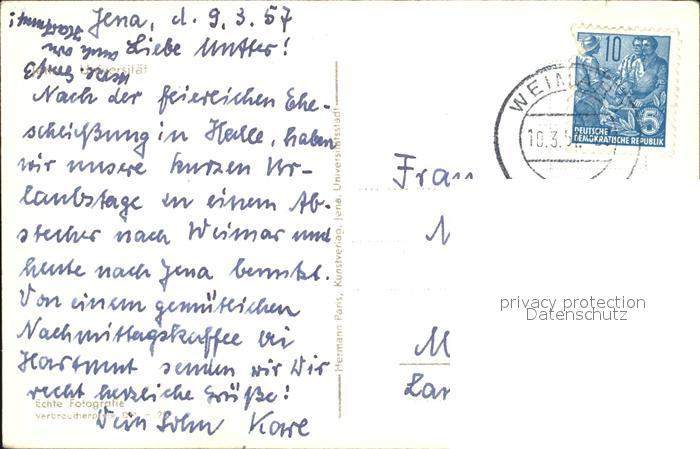 Jena, d. 9. 3. 57
Liebe Mutter!
Universität
Nach der feierlichen Ehe-
schließung in Halle, haben
wir unsere kurzen Ur-
laubstage zu einem Ab-
stecher nach Weimar und
heute nach Jena benutzt.
Von einem gemütlichen
Nachmittagskaffee bei
Hartmut senden wir Dir
recht herzliche Grüße!
Dein Sohn Karl
Echte Fotografie
Verbraucherpreis
Hermann Paris, Kunstverlag, Jena, Universitätsstadt
WEIMAR
10.3.5
10
DEUTSCHE
DEMOKRATISCHE REPUBLIK
5
Frau
privacy protection
Datenschutz